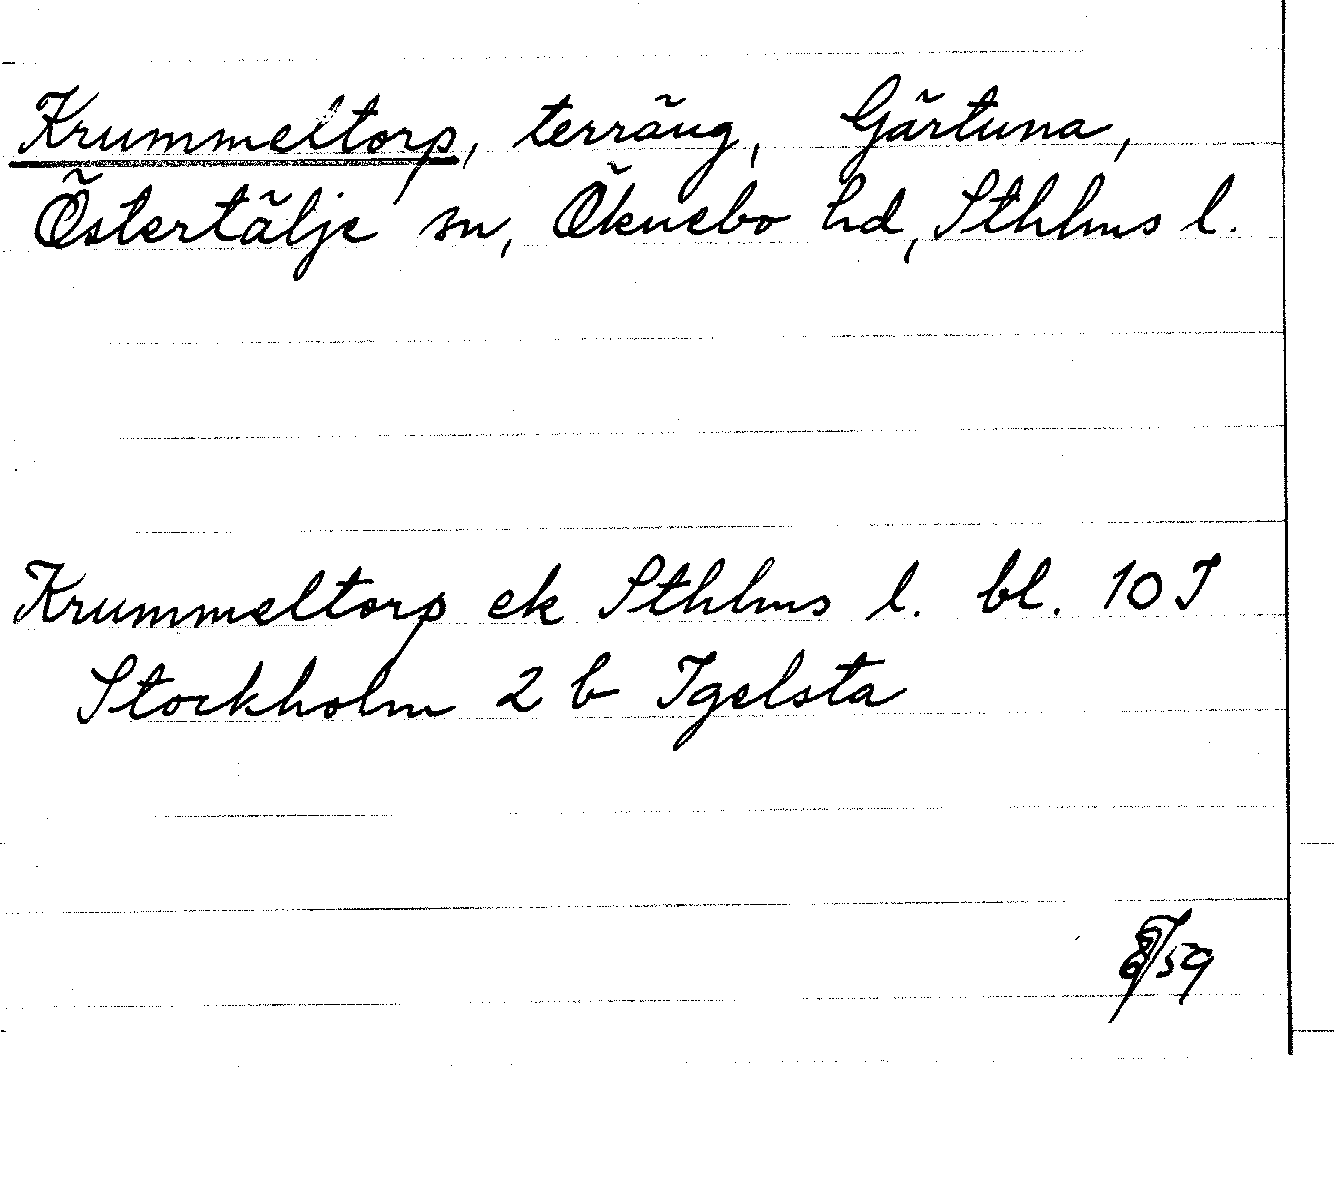 Krummeltorp, terräng, Gärtuna,
Östertälje sn, Öknebo hd, Sthlms l.
Krummeltorp ek Sthlms l. bl. 10 I
Stockholm 2 b Igelsta